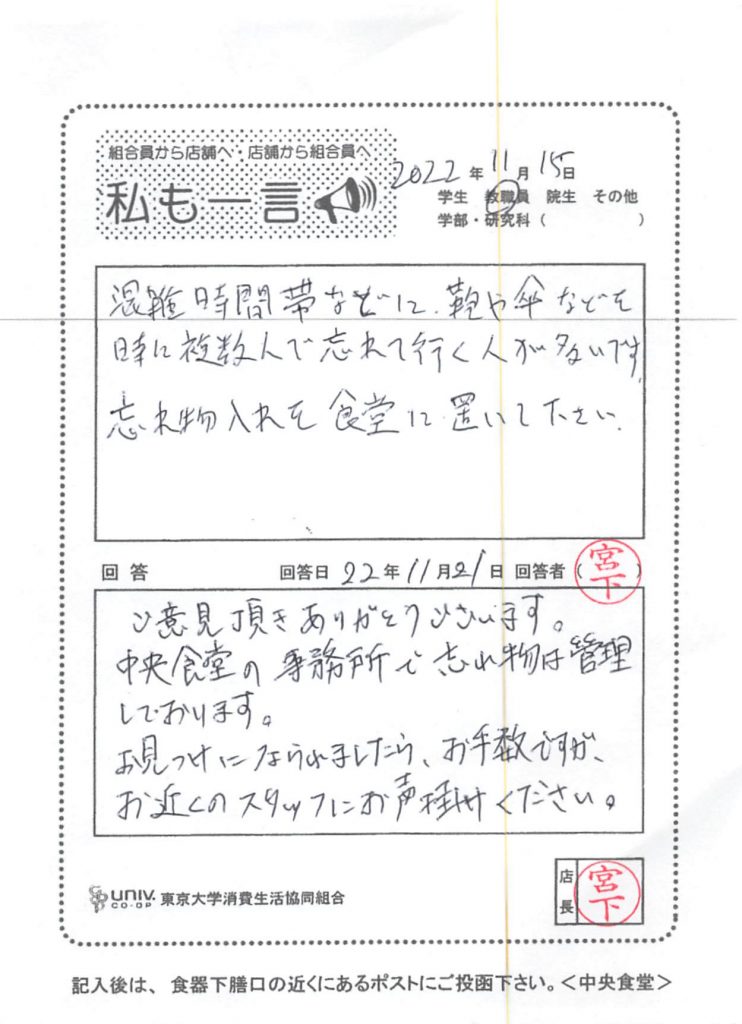 組合員から店舗へ・店舗から組合員へ
私も一言
2022年11月15日
学生 教職員 院生 その他
学部・研究科( )
混雑時間帯などに、鞄や傘などを
時に複数人で忘れて行く人が多いです
忘れ物入れを食堂に置いて下さい.
回答 回答日 22年11月21日 回答者( 宮下 )
ご意見頂きありがとうございます。
中央食堂の事務所で忘れ物は管理
しております。
お見つけになられましたら、お手数ですが、
お近くのスタッフにお声掛けください。
UNIV. CO-OP 東京大学消費生活協同組合
店長 宮下
記入後は、食器下膳口の近くにあるポストにご投函下さい。<中央食堂>